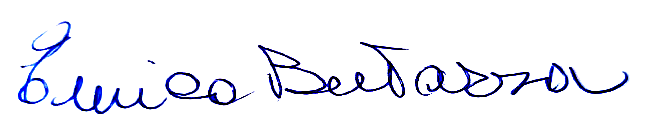 Enrico Bertazzoni